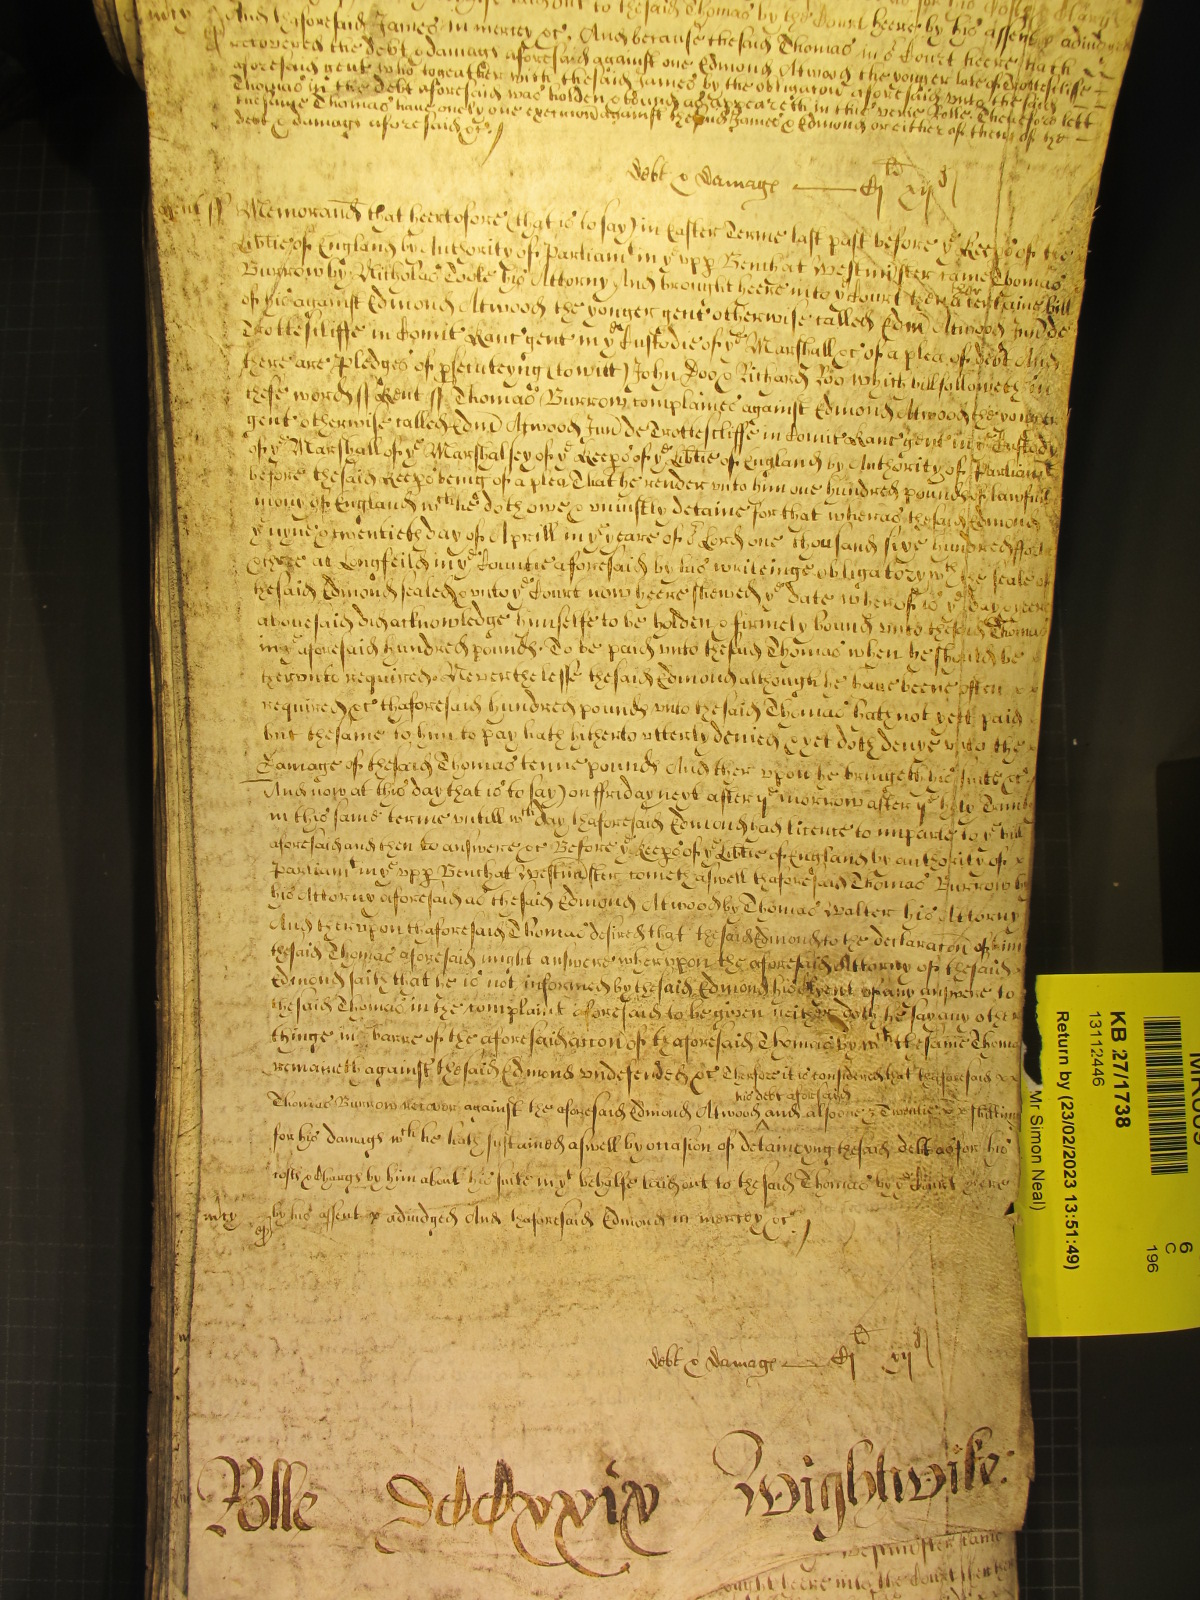 And thaforesaid James in mercy &c. And because thesaid Thomas in ye Court heere hath
recovered the debt & damags aforesaid against one Edmond Atwood the yonger late of Trottescliffe
aforesaid gent who togeather with thesaid James by the obligatory aforesaid unto thesaid
Thomas in the debt aforesaid was holden & bound as appeareth in this verie Rolle Therefore lett
thesame Thomas have onely one execucon against thesaid James & Edmond or either of them of the
debt & damags aforesaid &c
debt & damags Cj li xij d
Kent ss Memorand that heertofore (that is to say) in Easter Terme last past before ye Keeps of the
Libtie of England by Authority of Parliamt in ye upp Bench at Westminster came Thomas
Burrow by Nicholas Toole his Attorny And brought heere into ye Court then a certaine bill
of his against Edmond Atwood the yonger gent otherwise called Edm Atwood Jun de
Trottescliffe in Comit Kanc gent in ye Custodie of ye Marshall &c of a plea of debt And
there are Pledges of psecuteyng (to witt) John Doo & Richard Roo which bill followeth in
these words ss Kent ss Thomas Burrow complaines against Edmond Atwood the yonger
gent otherwise called Edm Atwood Jun de Trottescliffe in Comit Kanc gent in ye Custody
of ye Marshall of ye Marshalsey of ye Keeps of ye Libtie of England by Authority of Parliamt
before thesaid Keeps being of a plea That he render unto him one hundred pounds of lawfull
mony of England wch he doth owe & uniustly detaine for that wheras thesaid Edmond
ye nyne & twentieth day of Aprill in ye yeare of or Lord one thousand sixe hundred
at Longfeild in ye Countie aforesaid by his writeinge obligatory wth the seale of
thesaid Edmond sealed & unto ye Court now heere shewed ye date wherof is ye day & yeere
abovesaid did acknowledge himselfe to be holden & firmely bound unto thesaid Thomas
in ye aforesaid hundred pounds To be paid unto thesaid Thomas when he should be
therunto required Neverthelesse thesaid Edmond although he have beene often
required &c thaforesaid hundred pounds unto thesaid Thomas hath not yett paid
but thesame to him to pay hath hitherto utterly denied & yet doth denye unto the
Damage of thesaid Thomas tenne pounds And therupon he bringeth his suite &c
And now at this day that is to say) on ffriday next after ye morrow after ye holy Trinity
in this same terme untill wch day thaforesaid Edmond had licence to imparle to ye bill
aforesaid and then to answere &c Before ye Keeps of ye Libtie of England by authority of
Parliamt in ye upp Bench at Westminster cometh aswell thaforesaid Thomas Burrow by
his Attorny aforesaid as thesaid Edmond Atwood by Thomas Walter his Attorny
And therupon thaforesaid Thomas desired that thesaid Edmond to the declaracon of him
thesaid Thomas aforesaid might answere wherupon the aforesaid Attorny of thesaid
Edmond saith that he is not informed by thesaid Edmond his Clyent of any answere to
thesaid Thomas in the complaint aforesaid to be given neither doth he say any other
thinge in barre of the aforesaid accon of thaforesaid Thomas by wch thesame Thomas
remaineth against thesaid Edmond undefended &c Therfore it is considered that thaforesaid
his debt aforesaid
Thomas Burrow recover against the aforesaid Edmond Atwood and also one & Twentie shillings
for his damags wch he hath sustained aswell by occasion of detaineyng thesaid debt as for his
costs & chargs by him about his suite in yt behalfe laid out to the said Thomas by ye Court heere
mcy by his assent adiudged And thaforesaid Edmond in mercy &c
debt & damags Cj li xij d
Rolle DCCxxix Wightwike:
Westminster came
KB 27/1738
13112446
Return by (23/02/2023 13:51:49)
Mr Simon Neal)
6
C
196